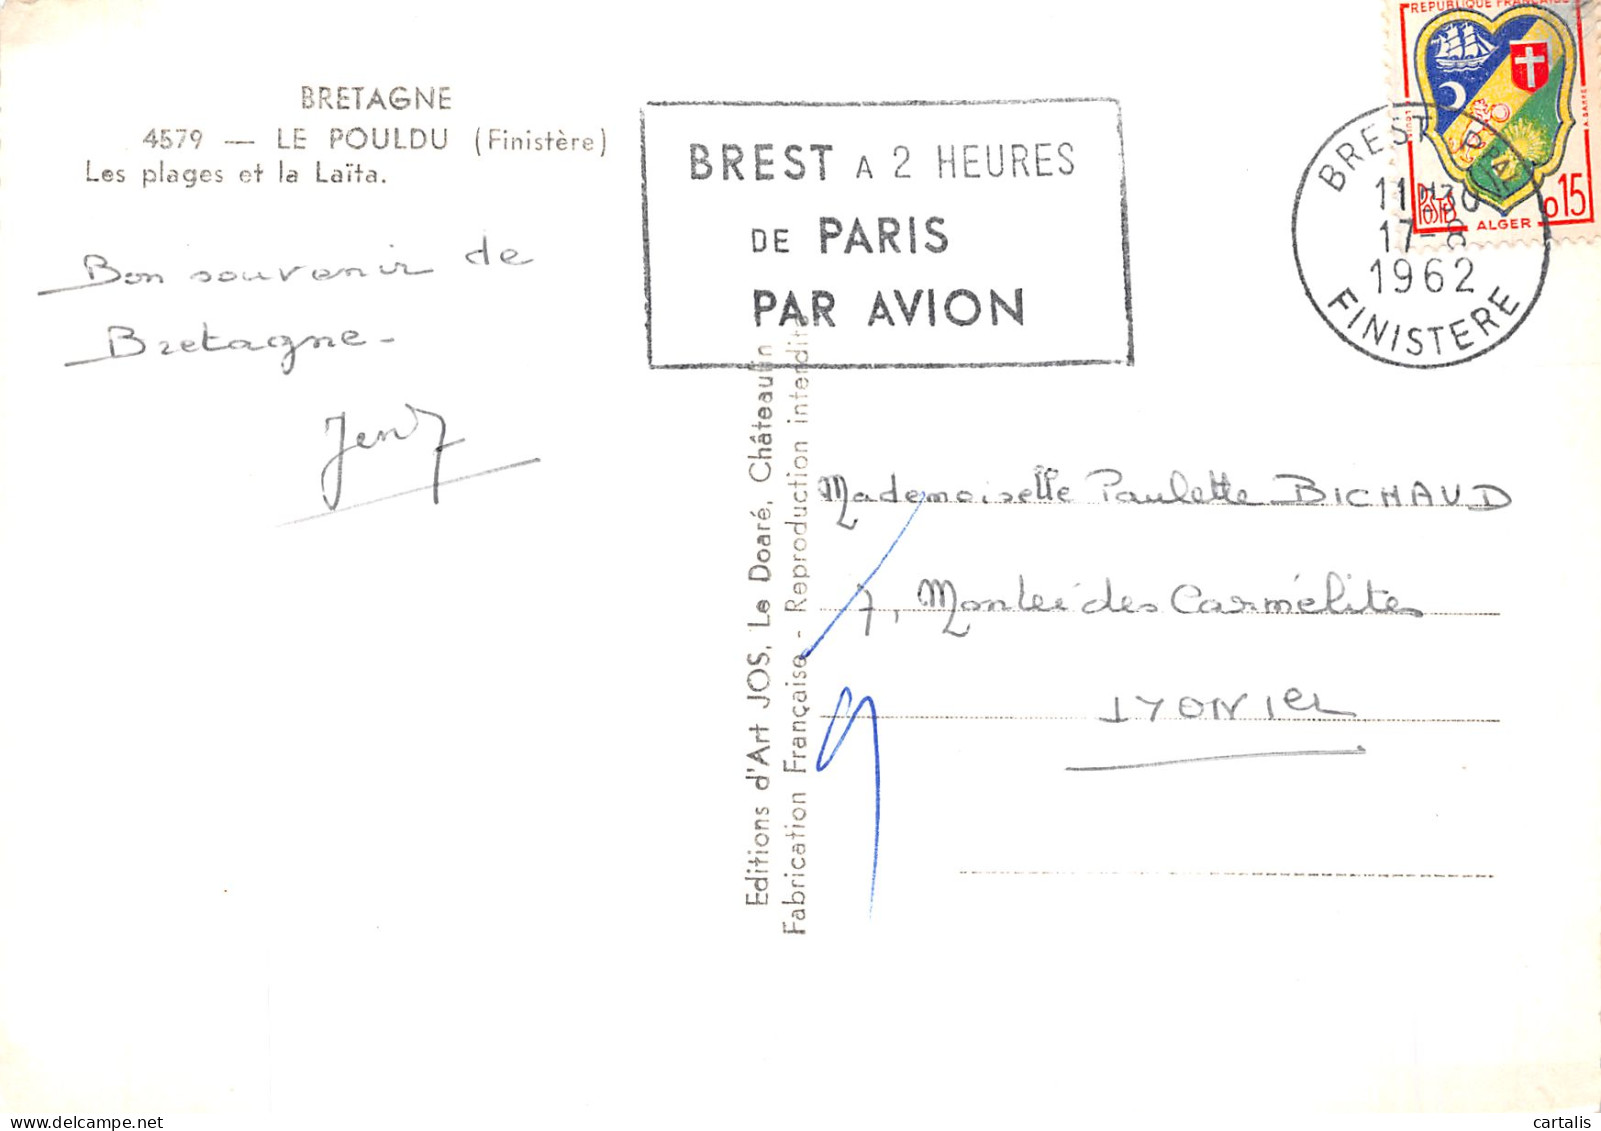 BRETAGNE
4579 — LE POULDU (Finistère)
Les plages et la Laïta.
Bon souvenir de
Bretagne -
BREST A 2 HEURES
DE PARIS
PAR AVION
REPUBLIQUE FRANCAISE
POSTES
ALGER
0,15
BREST
11H30
17-8
1962
FINISTERE
Editions d'Art JOS, Le Doaré, Châteaulin
Fabrication Française - Reproduction interdite
Mademoiselle Paulette BICHAUD
7, Montée des Carmélites
LYON 1er
cartalis